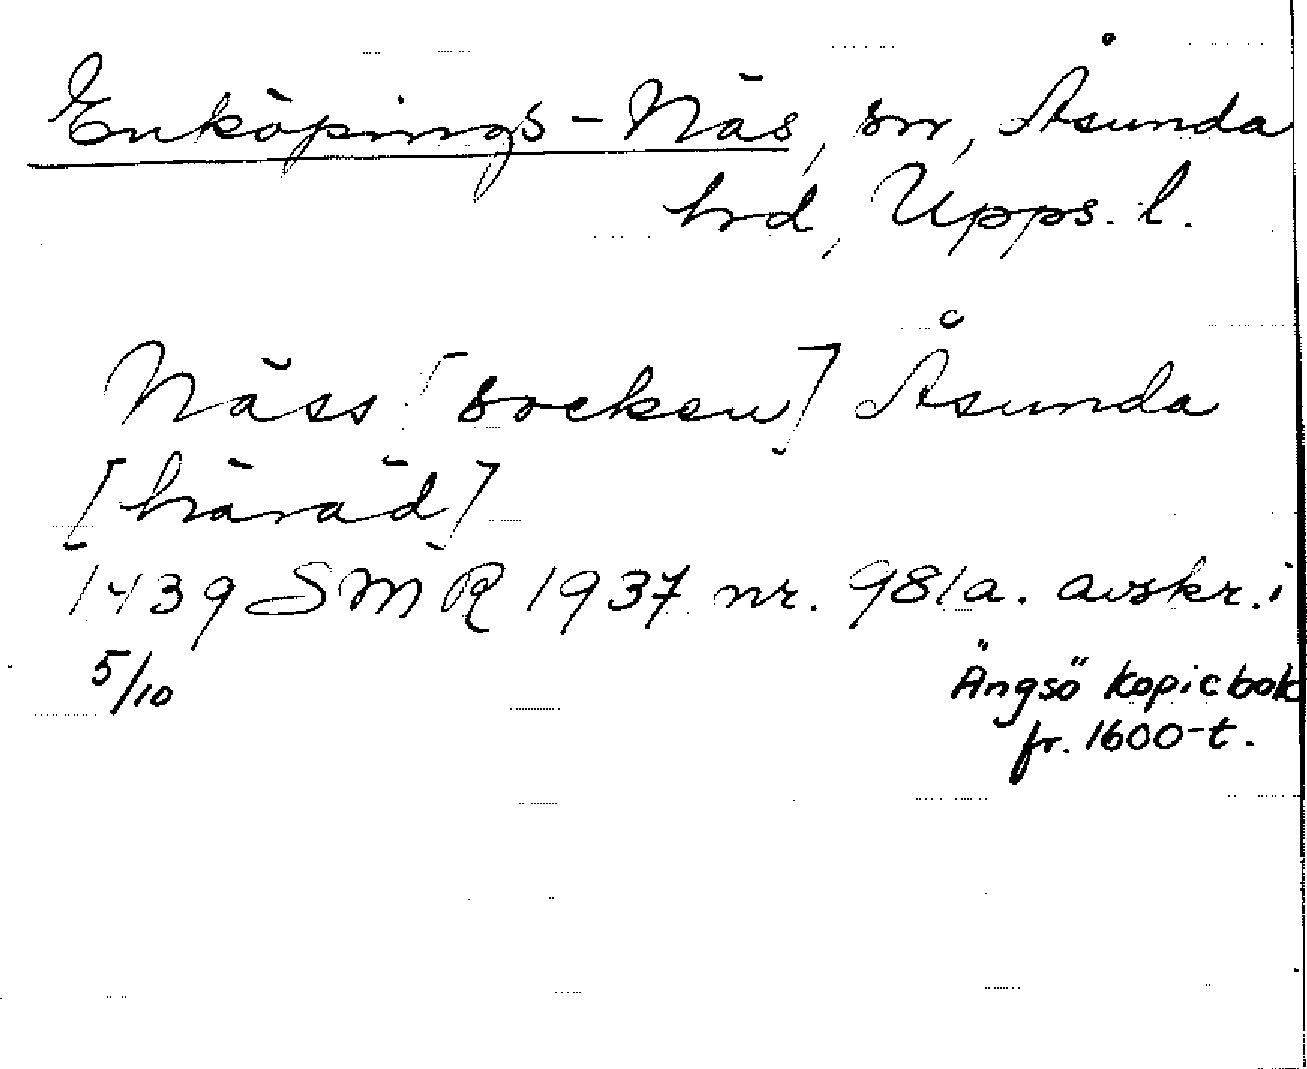 Enköpings-Näs, sn, Åsunda
hrd, Upps. l.
Näss [socken] Åsunda
[häräd]
1439 SMR 1937 nr. 981a. avskr. i
5/10 Ängsö kopiebok
fr. 1600-t.